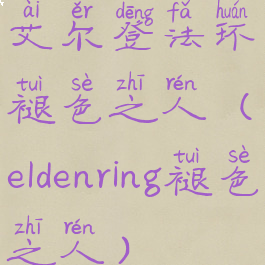 ài ěr dēng fǎ huán
艾尔登法环
tuì sè zhī rén
褪色之人（
tuì sè
eldenring褪色
zhī rén
之人）